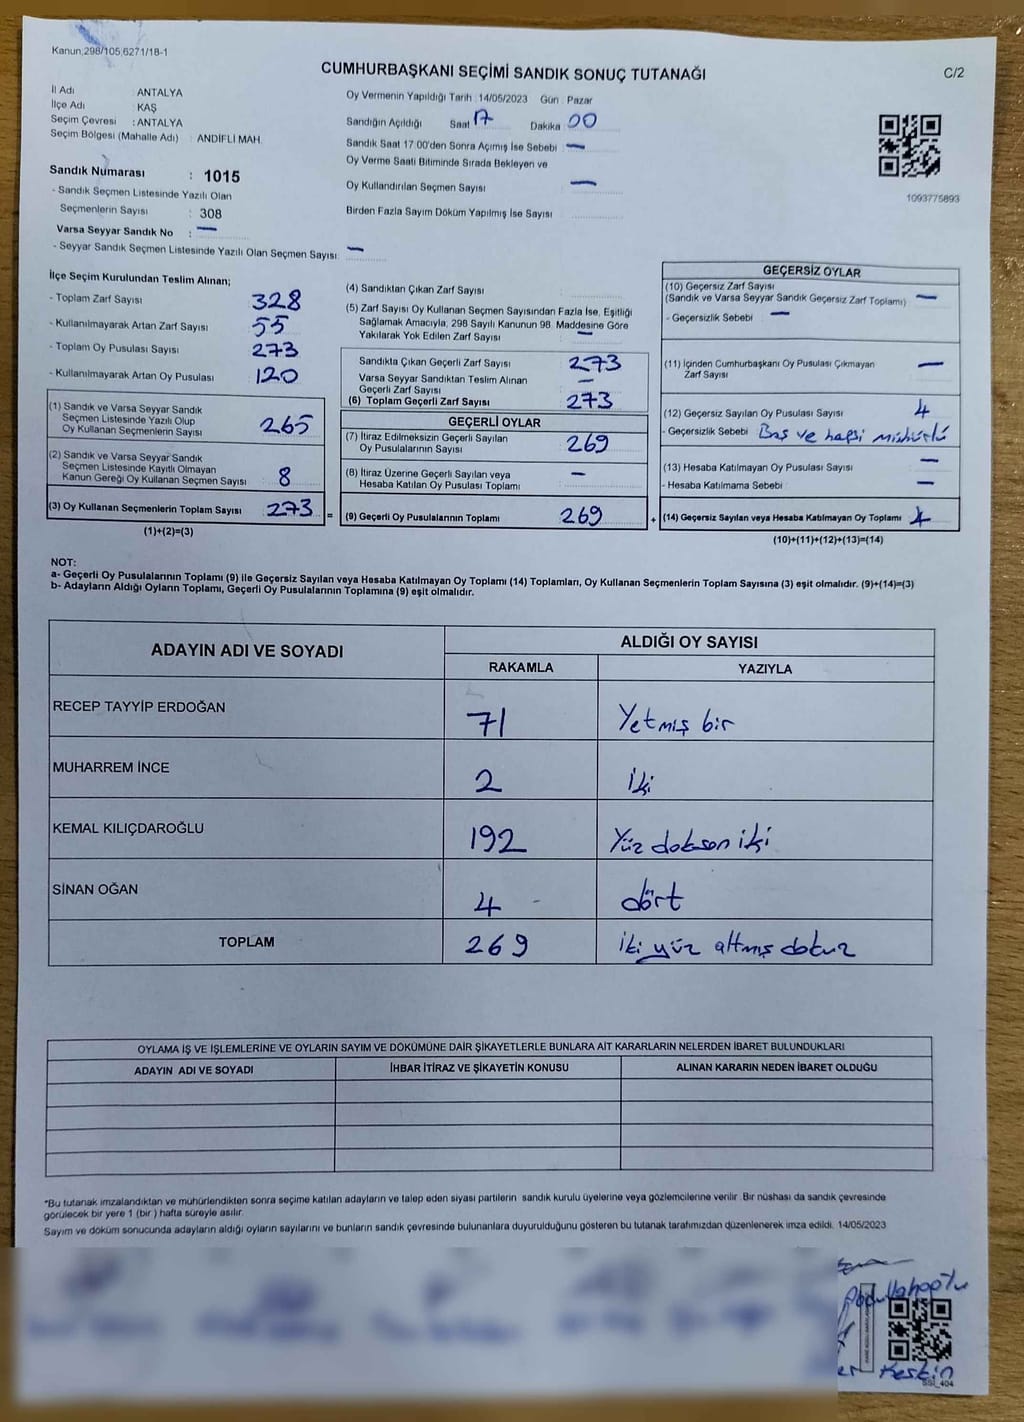 Kanun;298/105,6271/18-1
CUMHURBAŞKANI SEÇİMİ SANDIK SONUÇ TUTANAĞI
C/2
İl Adı : ANTALYA
İlçe Adı : KAŞ
Seçim Çevresi : ANTALYA
Seçim Bölgesi (Mahalle Adı) : ANDİFLİ MAH.
Sandık Numarası : 1015
- Sandık Seçmen Listesinde Yazılı Olan
Seçmenlerin Sayısı : 308
Varsa Seyyar Sandık No : —
- Seyyar Sandık Seçmen Listesinde Yazılı Olan Seçmen Sayısı: —
Oy Vermenin Yapıldığı Tarih :14/05/2023 Gün : Pazar
Sandığın Açıldığı Saat 17 Dakika 00
Sandık Saat 17:00'den Sonra Açımış İse Sebebi : —
Oy Verme Saati Bitiminde Sırada Bekleyen ve
Oy Kullandırılan Seçmen Sayısı —
Birden Fazla Sayım Döküm Yapılmış İse Sayısı
1093775893
İlçe Seçim Kurulundan Teslim Alınan;
- Toplam Zarf Sayısı 328
- Kullanılmayarak Artan Zarf Sayısı 55
- Toplam Oy Pusulası Sayısı 273
- Kullanılmayarak Artan Oy Pusulası 120
(1) Sandık ve Varsa Seyyar Sandık
Seçmen Listesinde Yazılı Olup
Oy Kullanan Seçmenlerin Sayısı 265
(2) Sandık ve Varsa Seyyar Sandık
Seçmen Listesinde Kayıtlı Olmayan
Kanun Gereği Oy Kullanan Seçmen Sayısı 8
(3) Oy Kullanan Seçmenlerin Toplam Sayısı 273 =
(1)+(2)=(3)
(4) Sandıktan Çıkan Zarf Sayısı
(5) Zarf Sayısı Oy Kullanan Seçmen Sayısından Fazla İse, Eşitliği
Sağlamak Amacıyla, 298 Sayılı Kanunun 98. Maddesine Göre
Yakılarak Yok Edilen Zarf Sayısı —
Sandıkta Çıkan Geçerli Zarf Sayısı 273
Varsa Seyyar Sandıktan Teslim Alınan
Geçerli Zarf Sayısı —
(6) Toplam Geçerli Zarf Sayısı 273
GEÇERLİ OYLAR
(7) İtiraz Edilmeksizin Geçerli Sayılan
Oy Pusulalarının Sayısı 269
(8) İtiraz Üzerine Geçerli Sayılan veya
Hesaba Katılan Oy Pusulası Toplamı —
(9) Geçerli Oy Pusulalarının Toplamı 269 +
GEÇERSİZ OYLAR
(10) Geçersiz Zarf Sayısı
(Sandık ve Varsa Seyyar Sandık Geçersiz Zarf Toplamı) —
- Geçersizlik Sebebi : —
(11) İçinden Cumhurbaşkanı Oy Pusulası Çıkmayan
Zarf Sayısı —
(12) Geçersiz Sayılan Oy Pusulası Sayısı 4
- Geçersizlik Sebebi Boş ve hepsi mühürlü
(13) Hesaba Katılmayan Oy Pusulası Sayısı —
- Hesaba Katılmama Sebebi : —
(14) Geçersiz Sayılan veya Hesaba Katılmayan Oy Toplamı 4
(10)+(11)+(12)+(13)=(14)
NOT:
a- Geçerli Oy Pusulalarının Toplamı (9) ile Geçersiz Sayılan veya Hesaba Katılmayan Oy Toplamı (14) Toplamları, Oy Kullanan Seçmenlerin Toplam Sayısına (3) eşit olmalıdır. (9)+(14)=(3)
b- Adayların Aldığı Oyların Toplamı, Geçerli Oy Pusulalarının Toplamına (9) eşit olmalıdır.
ADAYIN ADI VE SOYADI ALDIĞI OY SAYISI
RAKAMLA YAZIYLA
RECEP TAYYİP ERDOĞAN 71 Yetmiş bir
MUHARREM İNCE 2 İki
KEMAL KILIÇDAROĞLU 192 Yüz doksan iki
SİNAN OĞAN 4 - dört
TOPLAM 269 İki yüz altmış dokuz
OYLAMA İŞ VE İŞLEMLERİNE VE OYLARIN SAYIM VE DÖKÜMÜNE DAİR ŞİKAYETLERLE BUNLARA AİT KARARLARIN NELERDEN İBARET BULUNDUKLARI
ADAYIN ADI VE SOYADI İHBAR İTİRAZ VE ŞİKAYETİN KONUSU ALINAN KARARIN NEDEN İBARET OLDUĞU
*Bu tutanak imzalandıktan ve mühürlendikten sonra seçime katılan adayların ve talep eden siyasi partilerin sandık kurulu üyelerine veya gözlemcilerine verilir. Bir nüshası da sandık çevresinde
görülecek bir yere 1 (bir ) hafta süreyle asılır.
Sayım ve döküm sonucunda adayların aldığı oyların sayılarını ve bunların sandık çevresinde bulunanlara duyurulduğunu gösteren bu tutanak tarafımızdan düzenlenerek imza edildi. 14/05/2023
Keskin
SSİ_404